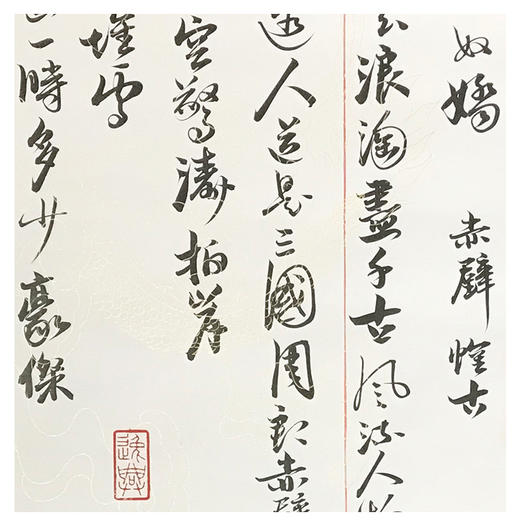 奴嬌 赤壁懷古
浪淘盡千古風流人物
邊人道是三國周郎赤壁
空驚濤拍岸
堆雪
一時多少豪傑
逸興